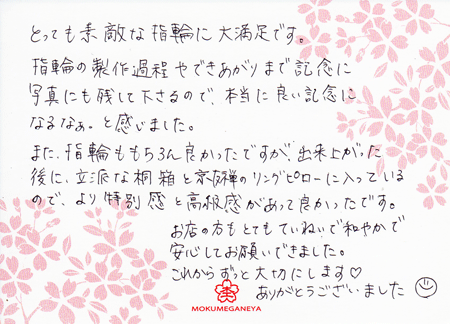 とっても素敵な指輪に大満足です。
指輪の製作過程やできあがりまで記念に
写真にも残して下さるので、本当に良い記念に
なるなぁ。と感じました。
また、指輪ももちろん良かったですが、出来上がった
後に、立派な桐箱と京友禅のリングピローに入っている
ので、より特別感と高級感があって良かったです。
お店の方もとてもていねいで和やかで
安心してお願いできました。
これからずっと大切にします♡
ありがとうございました
MOKUMEGANEYA